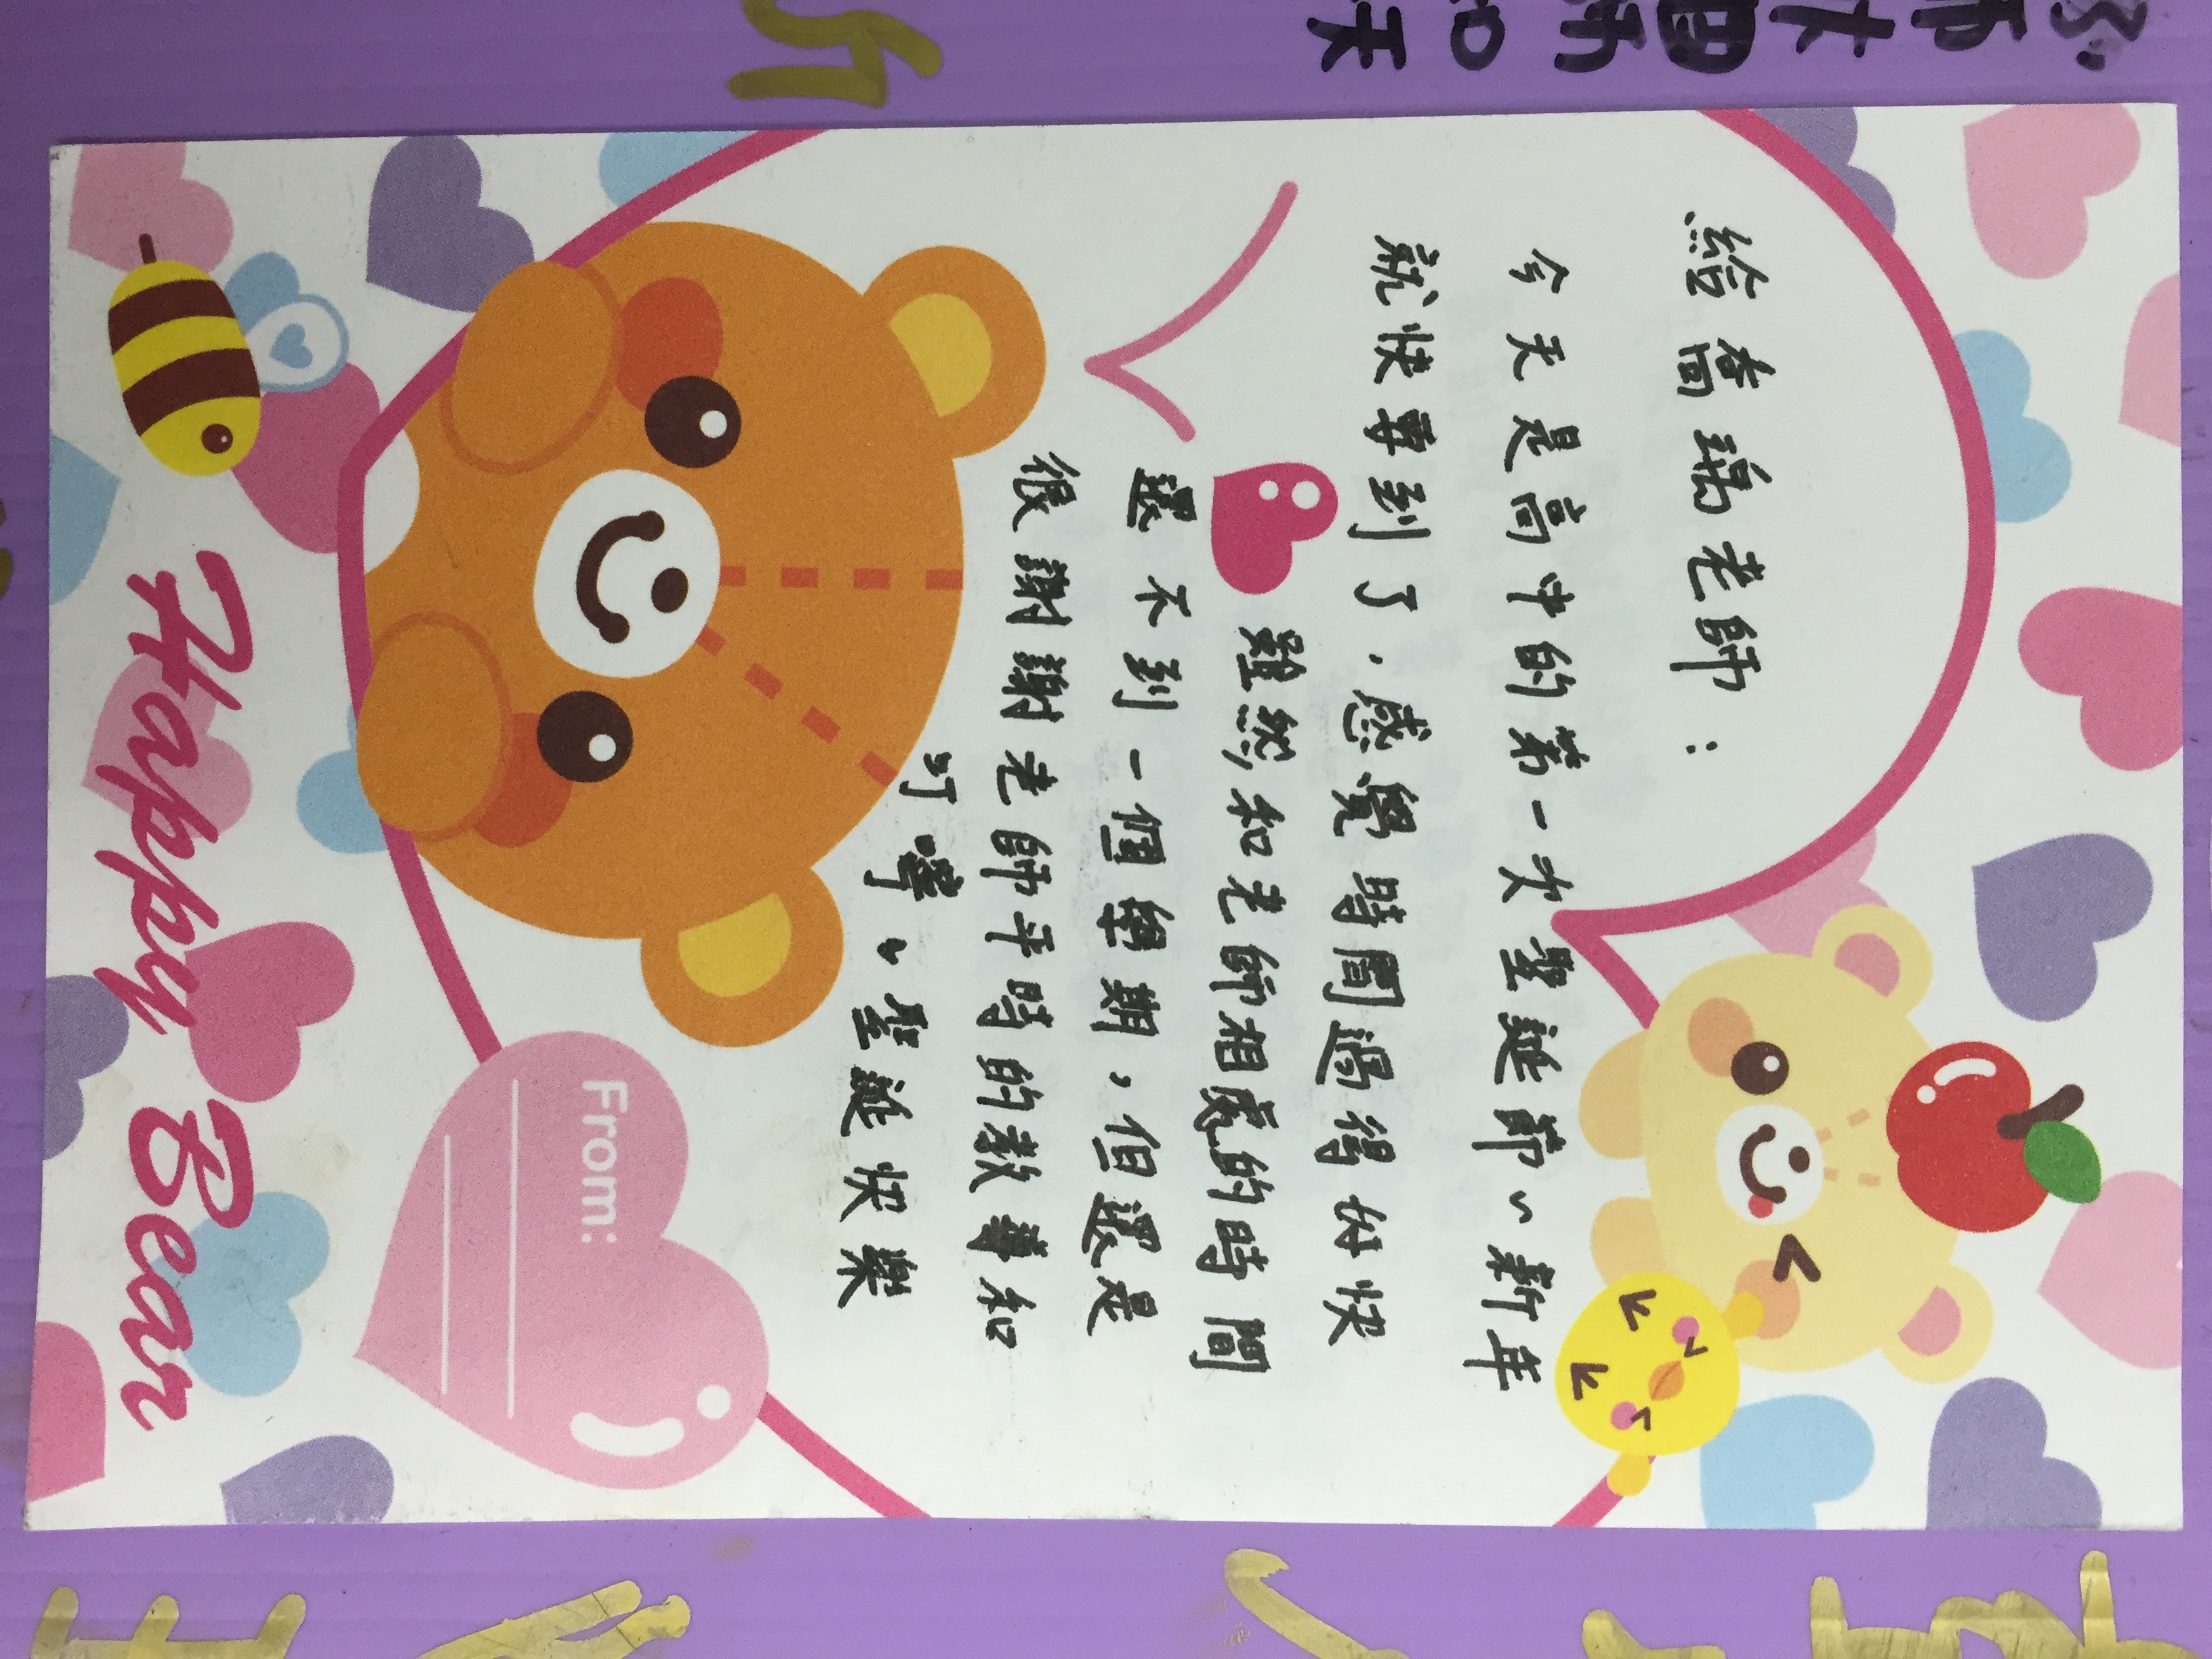 給喬瑀老師：
今天是高中的第一次聖誕節~新年
就快要到了，感覺時間過得好快
雖然和老師相處的時間
還不到一個學期，但還是
很謝謝老師平時的教導和
叮嚀。聖誕快樂
From:
Happy Bear